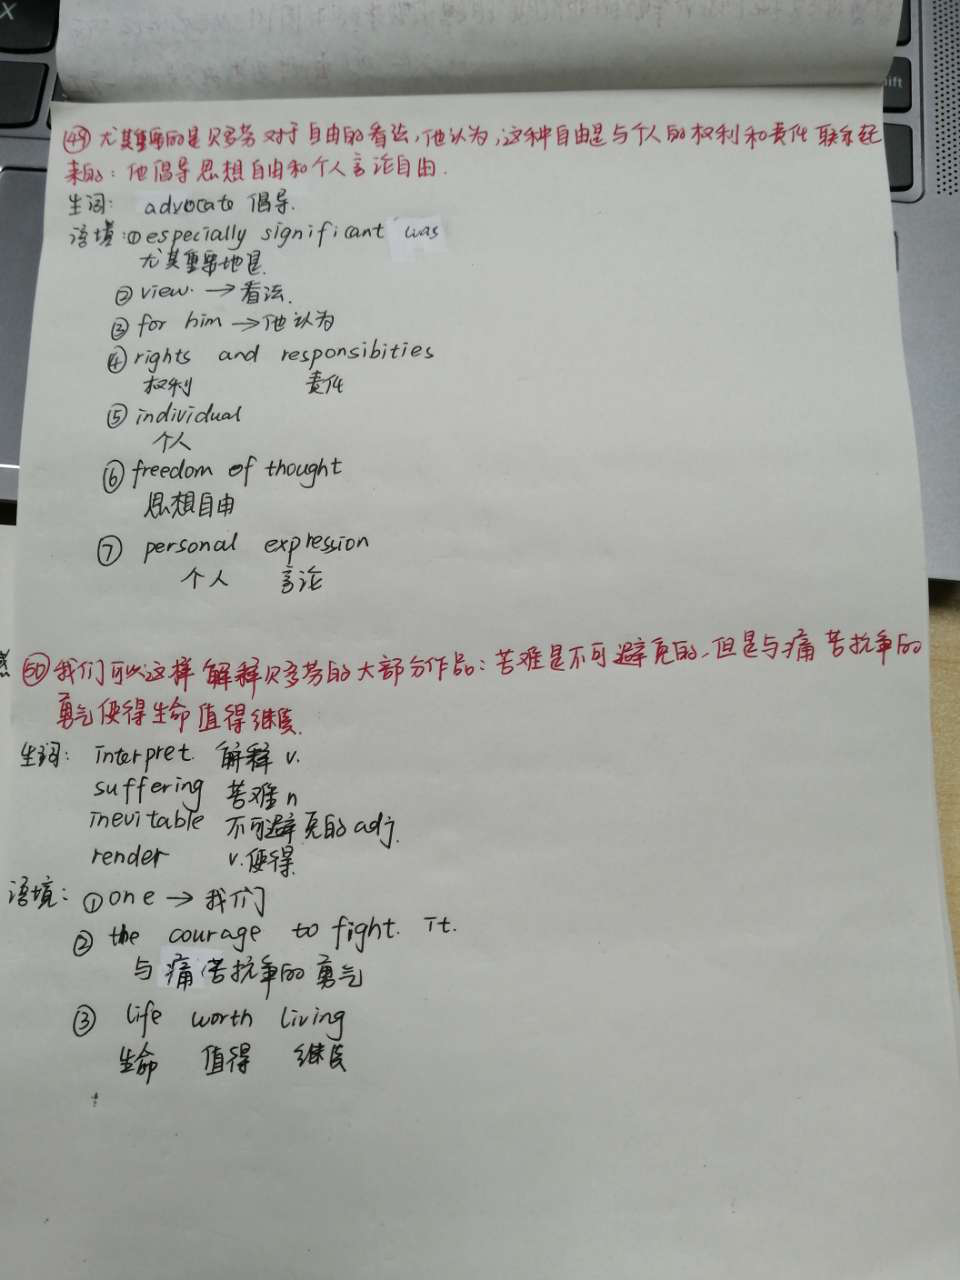 X
ift
㊾ 尤其重要的是贝多芬对于自由的看法，他认为，这种自由是与个人的权利和责任联系起
来的：他倡导思想自由和个人言论自由.
生词： advocate 倡导.
语境：① especially significant was
尤其重要地是.
② view. → 看法.
③ for him → 他认为
④ rights and responsibities
权利 责任
⑤ individual
个人
⑥ freedom of thought
思想自由
⑦ personal expression
个人 言论
㊿ 我们可以这样解释贝多芬的大部分作品：苦难是不可避免的，但是与痛苦抗争的
勇气使得生命值得继续.
生词： interpret. 解释 v.
suffering 苦难 n
inevitable 不可避免的 adj.
render v.使得
语境： ① one → 我们
② the courage to fight. it.
与痛苦抗争的勇气
③ life worth living
生命 值得 继续